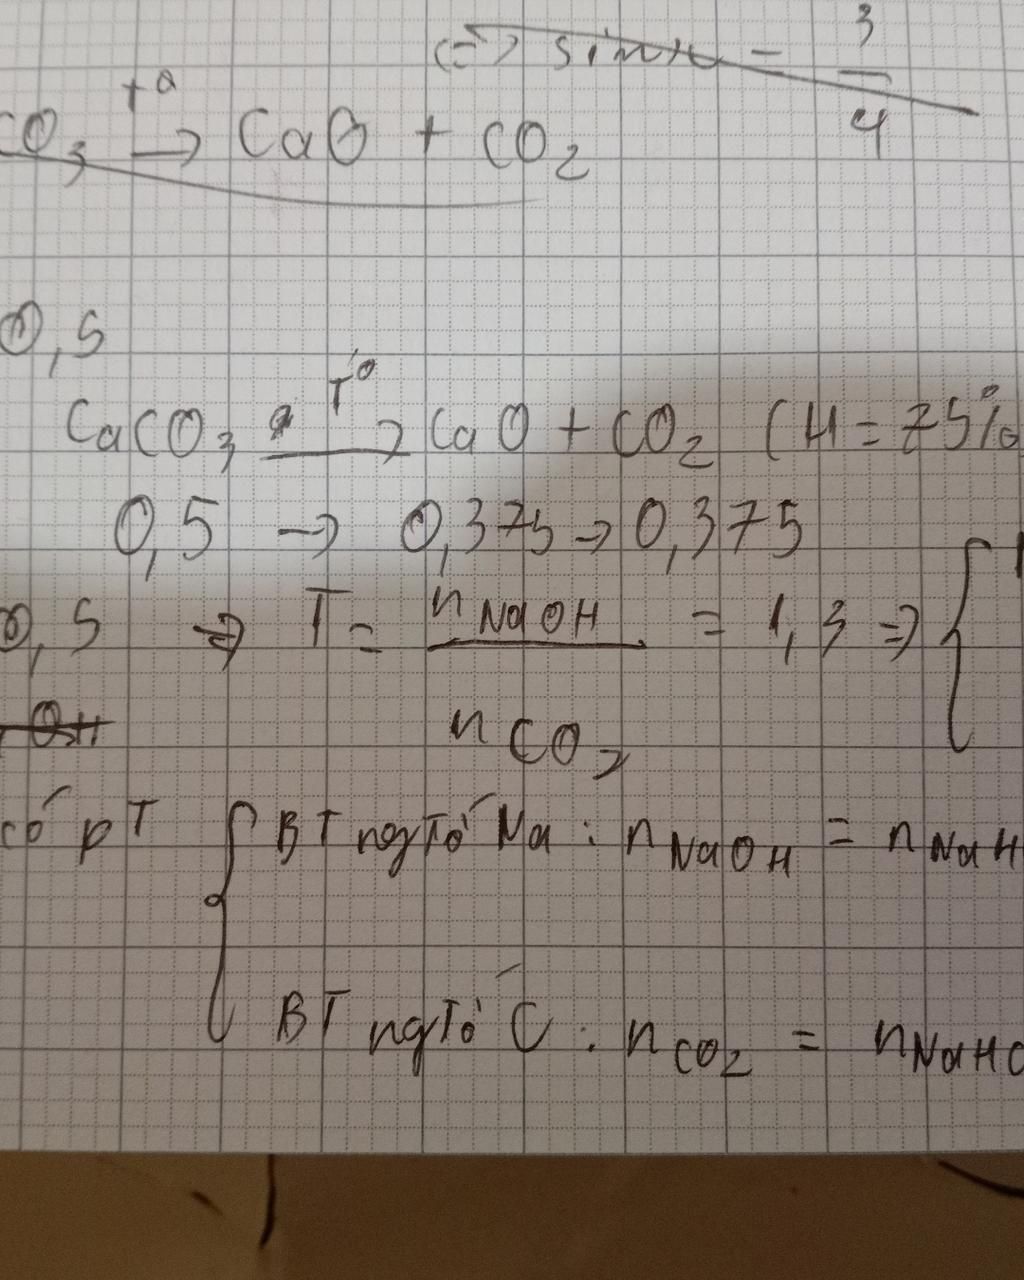 <=> sinx = 3/4
CO₃ t° → CaO + CO₂
0,5
CaCO₃ T° → CaO + CO₂ (H = 75%
0,5 → 0,375 → 0,375
0,5 => T = n NaOH / n CO₂ = 1,3 => {
OH
có pT { BT ngTố Na : n NaOH = n NaH
BT ngTố C : n CO₂ = n NaHC